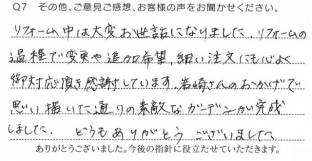 Q7 その他、ご意見ご感想、お客様の声をお聞かせください。
リフォーム中は大変お世話になりました。リフォームの
過程で変更や追加希望、細い注文にも心よく
御対応頂き感謝しています。岩崎さんのおかげで
思い描いた通りの素敵なガーデンが完成
しました。 どうもありがとう ございました
ありがとうございました。今後の指針に役立たせていただきます。